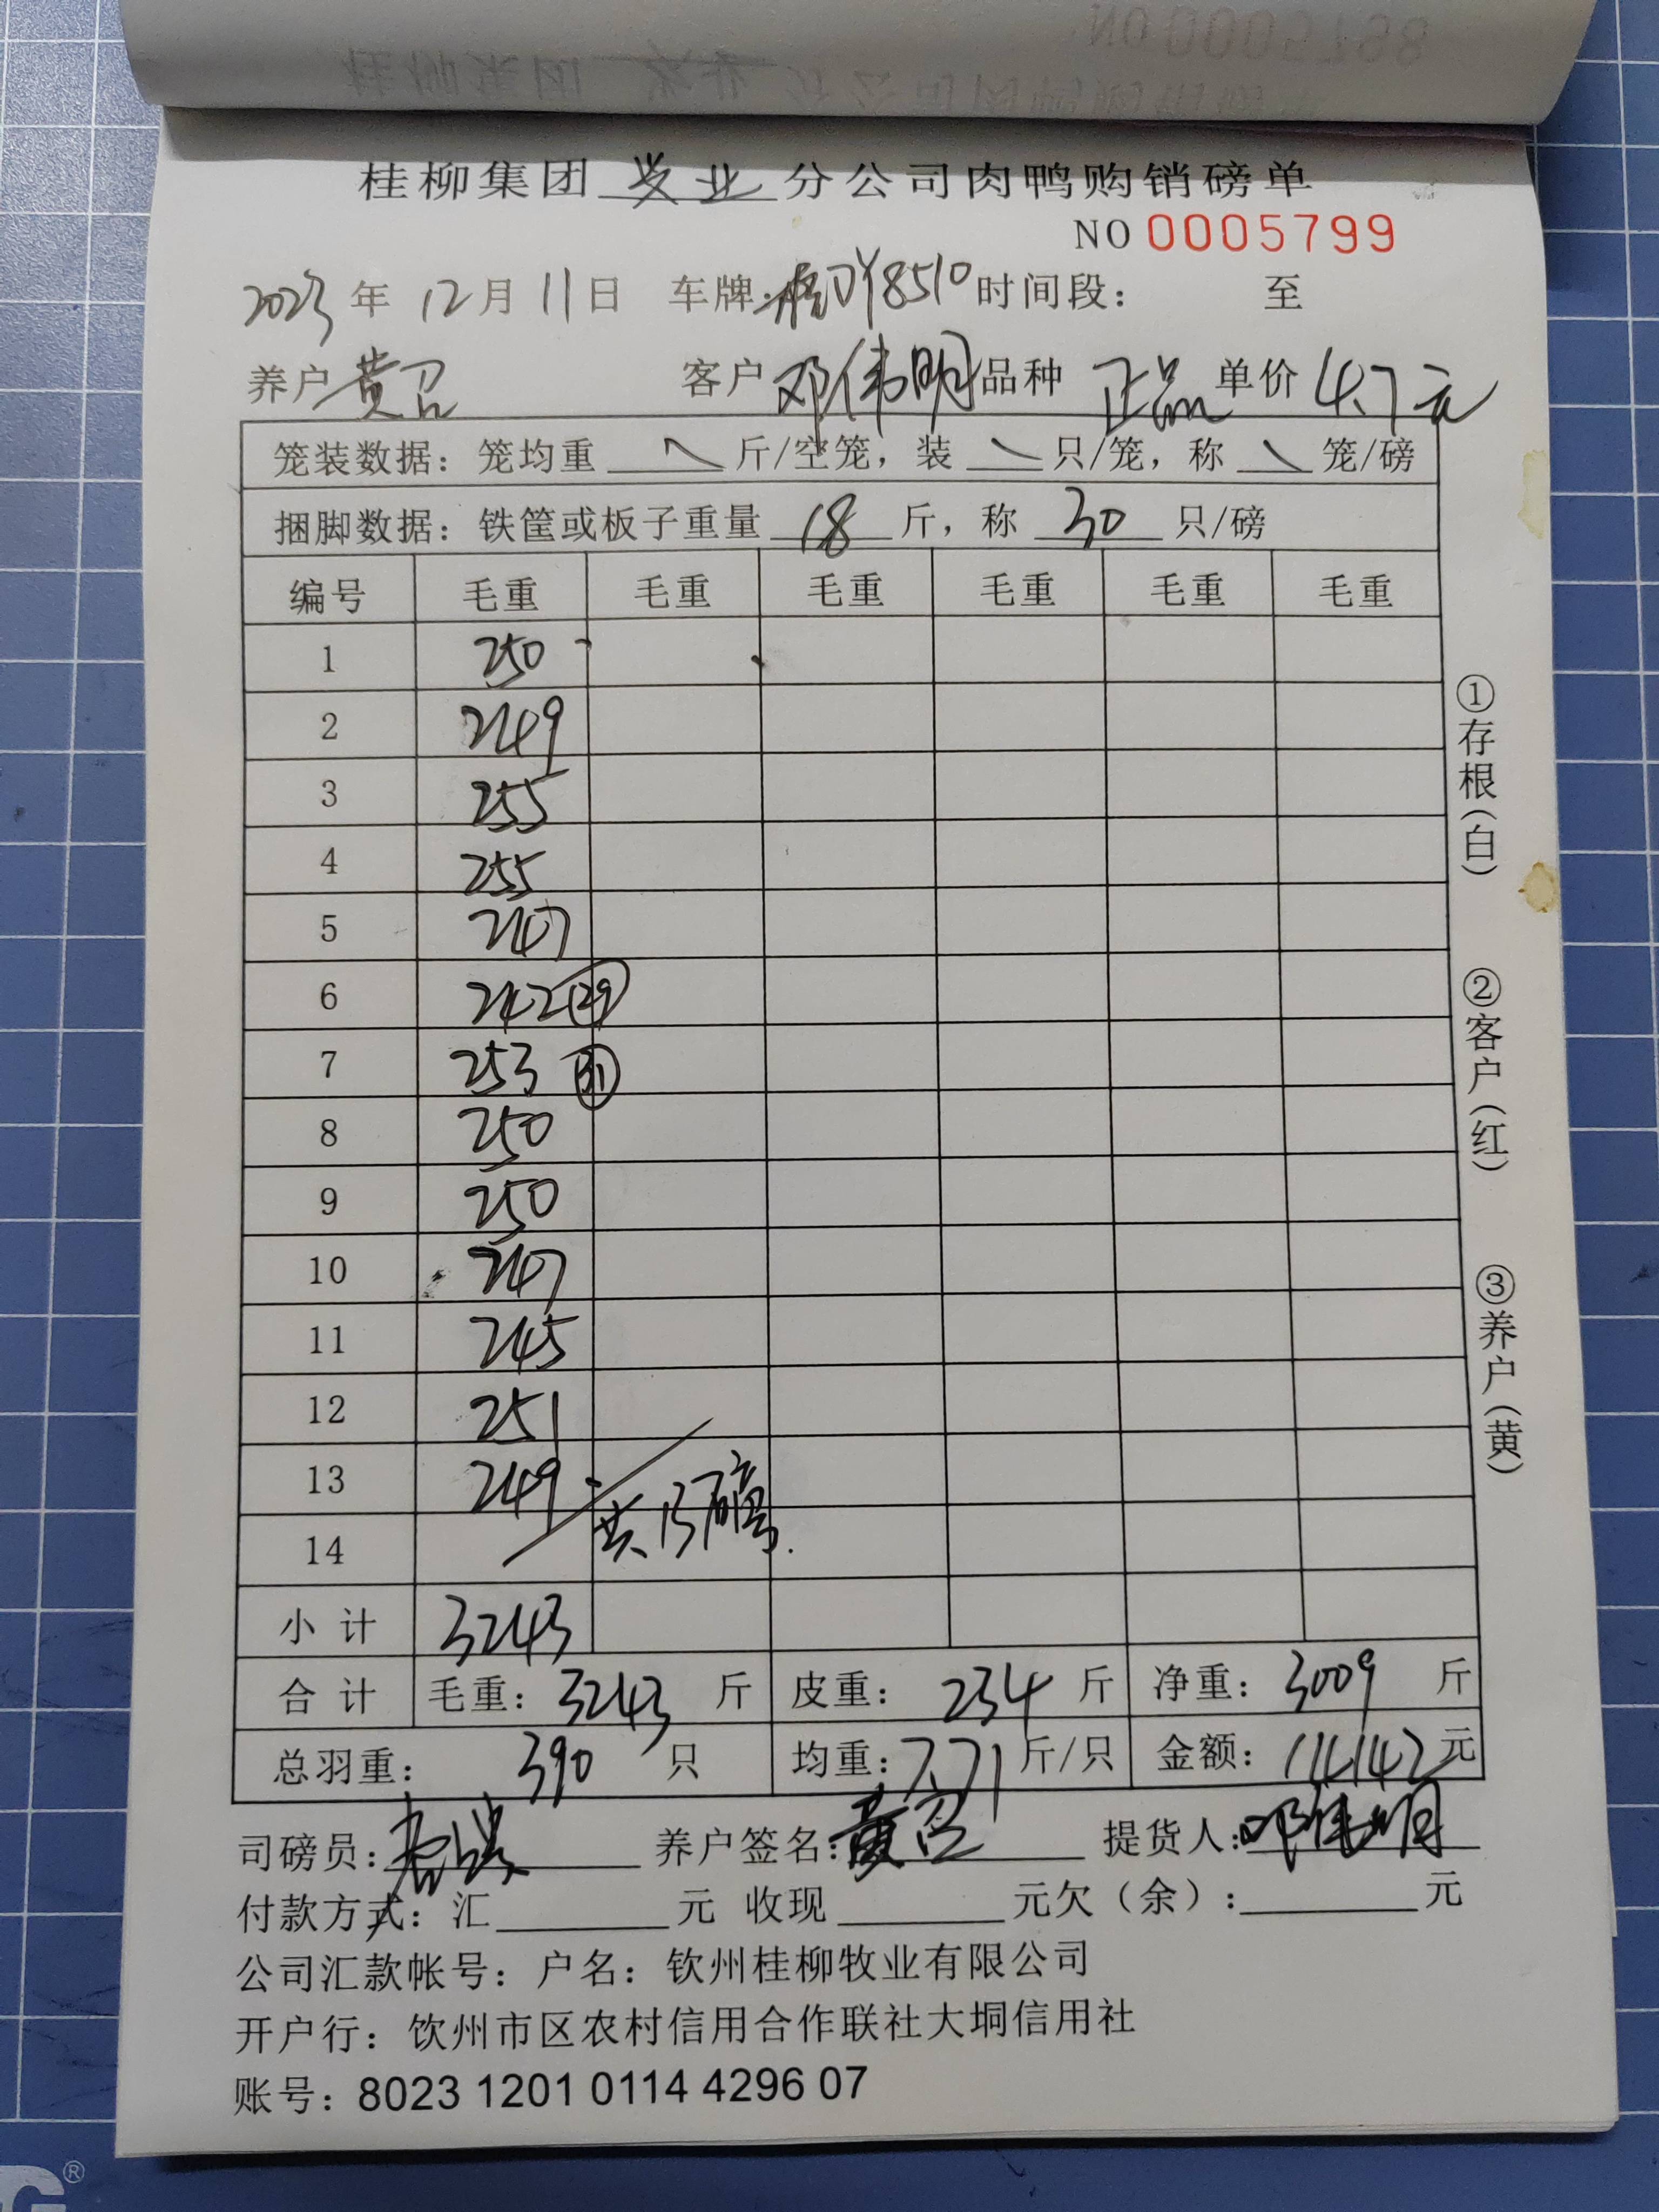 桂柳集团 业 分公司肉鸭购销磅单
NO 0005799
2023 年 12 月 11 日 车牌: 8510 时间段: 至
养户 黄召 客户 邓伟明 品种 正品 单价 4.7元
笼装数据: 笼均重 斤/空笼, 装 只/笼, 称 笼/磅
捆脚数据: 铁筐或板子重量 18 斤, 称 30 只/磅
编号 毛重 毛重 毛重 毛重 毛重 毛重
1 250
2 249
3 255
4 255
5 247
6 242 29
7 253 31
8 250
9 250
10 247
11 245
12 251
13 249
14 共13磅.
小计 3243
合计 毛重: 3243 斤 皮重: 234 斤 净重: 3009 斤
总羽重: 390 只 均重: 7.71 斤/只 金额: 14142 元
司磅员: 养户签名: 黄召 提货人: 邓伟明
付款方式: 汇 元 收现 元欠(余): 元
公司汇款帐号: 户名: 钦州桂柳牧业有限公司
开户行: 钦州市区农村信用合作联社大垌信用社
账号: 8023 1201 0114 4296 07
①存根(白)
②客户(红)
③养户(黄)